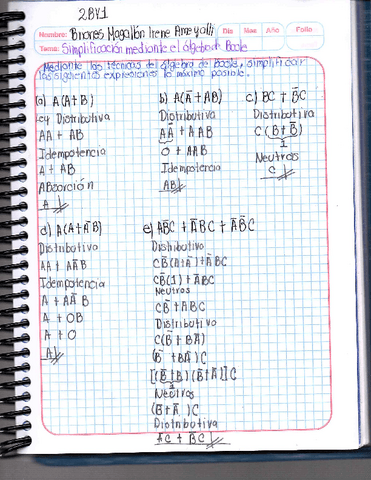 2BV1
Nombre: Binares Magallón Irene Ameyalli Día Mes Año Folio
Tema: Simplificación mediante el álgebra de Boole
Mediante las técnicas del álgebra de Boole, simplificar
las siguientes expresiones lo máximo posible.
a) A(A+B)
Ley Distributiva
AA + AB
Idempotencia
A + AB
Absorción
A
b) A(Ā+AB)
Distributiva
AĀ + AAB
0 + AAB
Idempotencia
AB
c) BC + B̄C
Distributiva
C(B+B̄)
1
Neutros
C
d) A(A+ĀB)
Distributivo
AA + AĀB
Idempotencia
A + AĀB
A + 0B
A + 0
A
e) AB̄C + ĀB̄C + ĀBC
Distributivo
CB̄(A+Ā)+ĀBC
CB̄(1)+ĀBC
Neutros
CB̄+ĀBC
Distributivo
C(B̄+BĀ)
(B̄ +BĀ)C
[(B̄+B)(B̄+Ā)]C
1
Neutros
(B̄+Ā)C
Distributiva
ĀC + B̄C